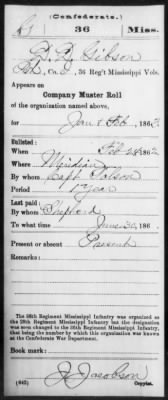 (Confederate.)
G 36 Miss.
Gibson
Pvt, Co. , 36 Reg't Mississippi Vols.
Appears on
Company Muster Roll
of the organization named above,
for Jan & Feb, 1863.
Enlisted:
When Feb 24, 1862
Where Meridian
By whom Capt
Period 1 year
Last paid:
By whom Shepherd
To what time June 30, 186
Present or absent Present
Remarks:
The 36th Regiment Mississippi Infantry was organized as
the 29th Regiment Mississippi Infantry but the designation
was soon changed to the 36th Regiment Mississippi Infantry,
that being the number by which this organization was known
at the Confederate War Department.
Book mark:
J. Jacobson
(642) Copyist.